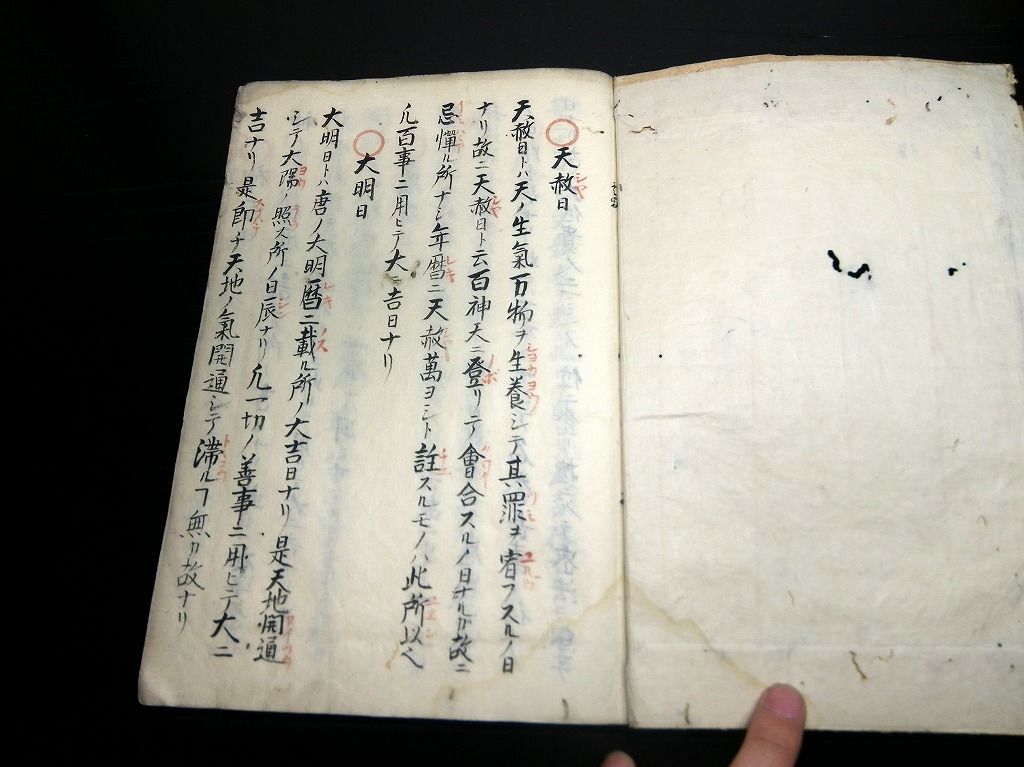 〇天赦日
天赦日トハ天ノ生氣万物ヲ生養シテ其罪ヲ宥フスルノ日
ナリ故ニ天赦日ト云百神天ニ登リテ會合スルノ日ナルガ故ニ
忌憚ル所ナシ年暦ニ天赦萬ヨシト註スルモノハ此所以也
凡百事ニ用ヒテ大ニ吉日ナリ
〇大明日
大明日トハ唐ノ大明暦ニ載ル所ノ大吉日ナリ是天地開通
シテ大陽ノ照ス所ノ日辰ナリ凡一切ノ善事ニ用ヒテ大ニ
吉ナリ是即チ天地ノ氣開通シテ滞ルヿ無カ故ナリ